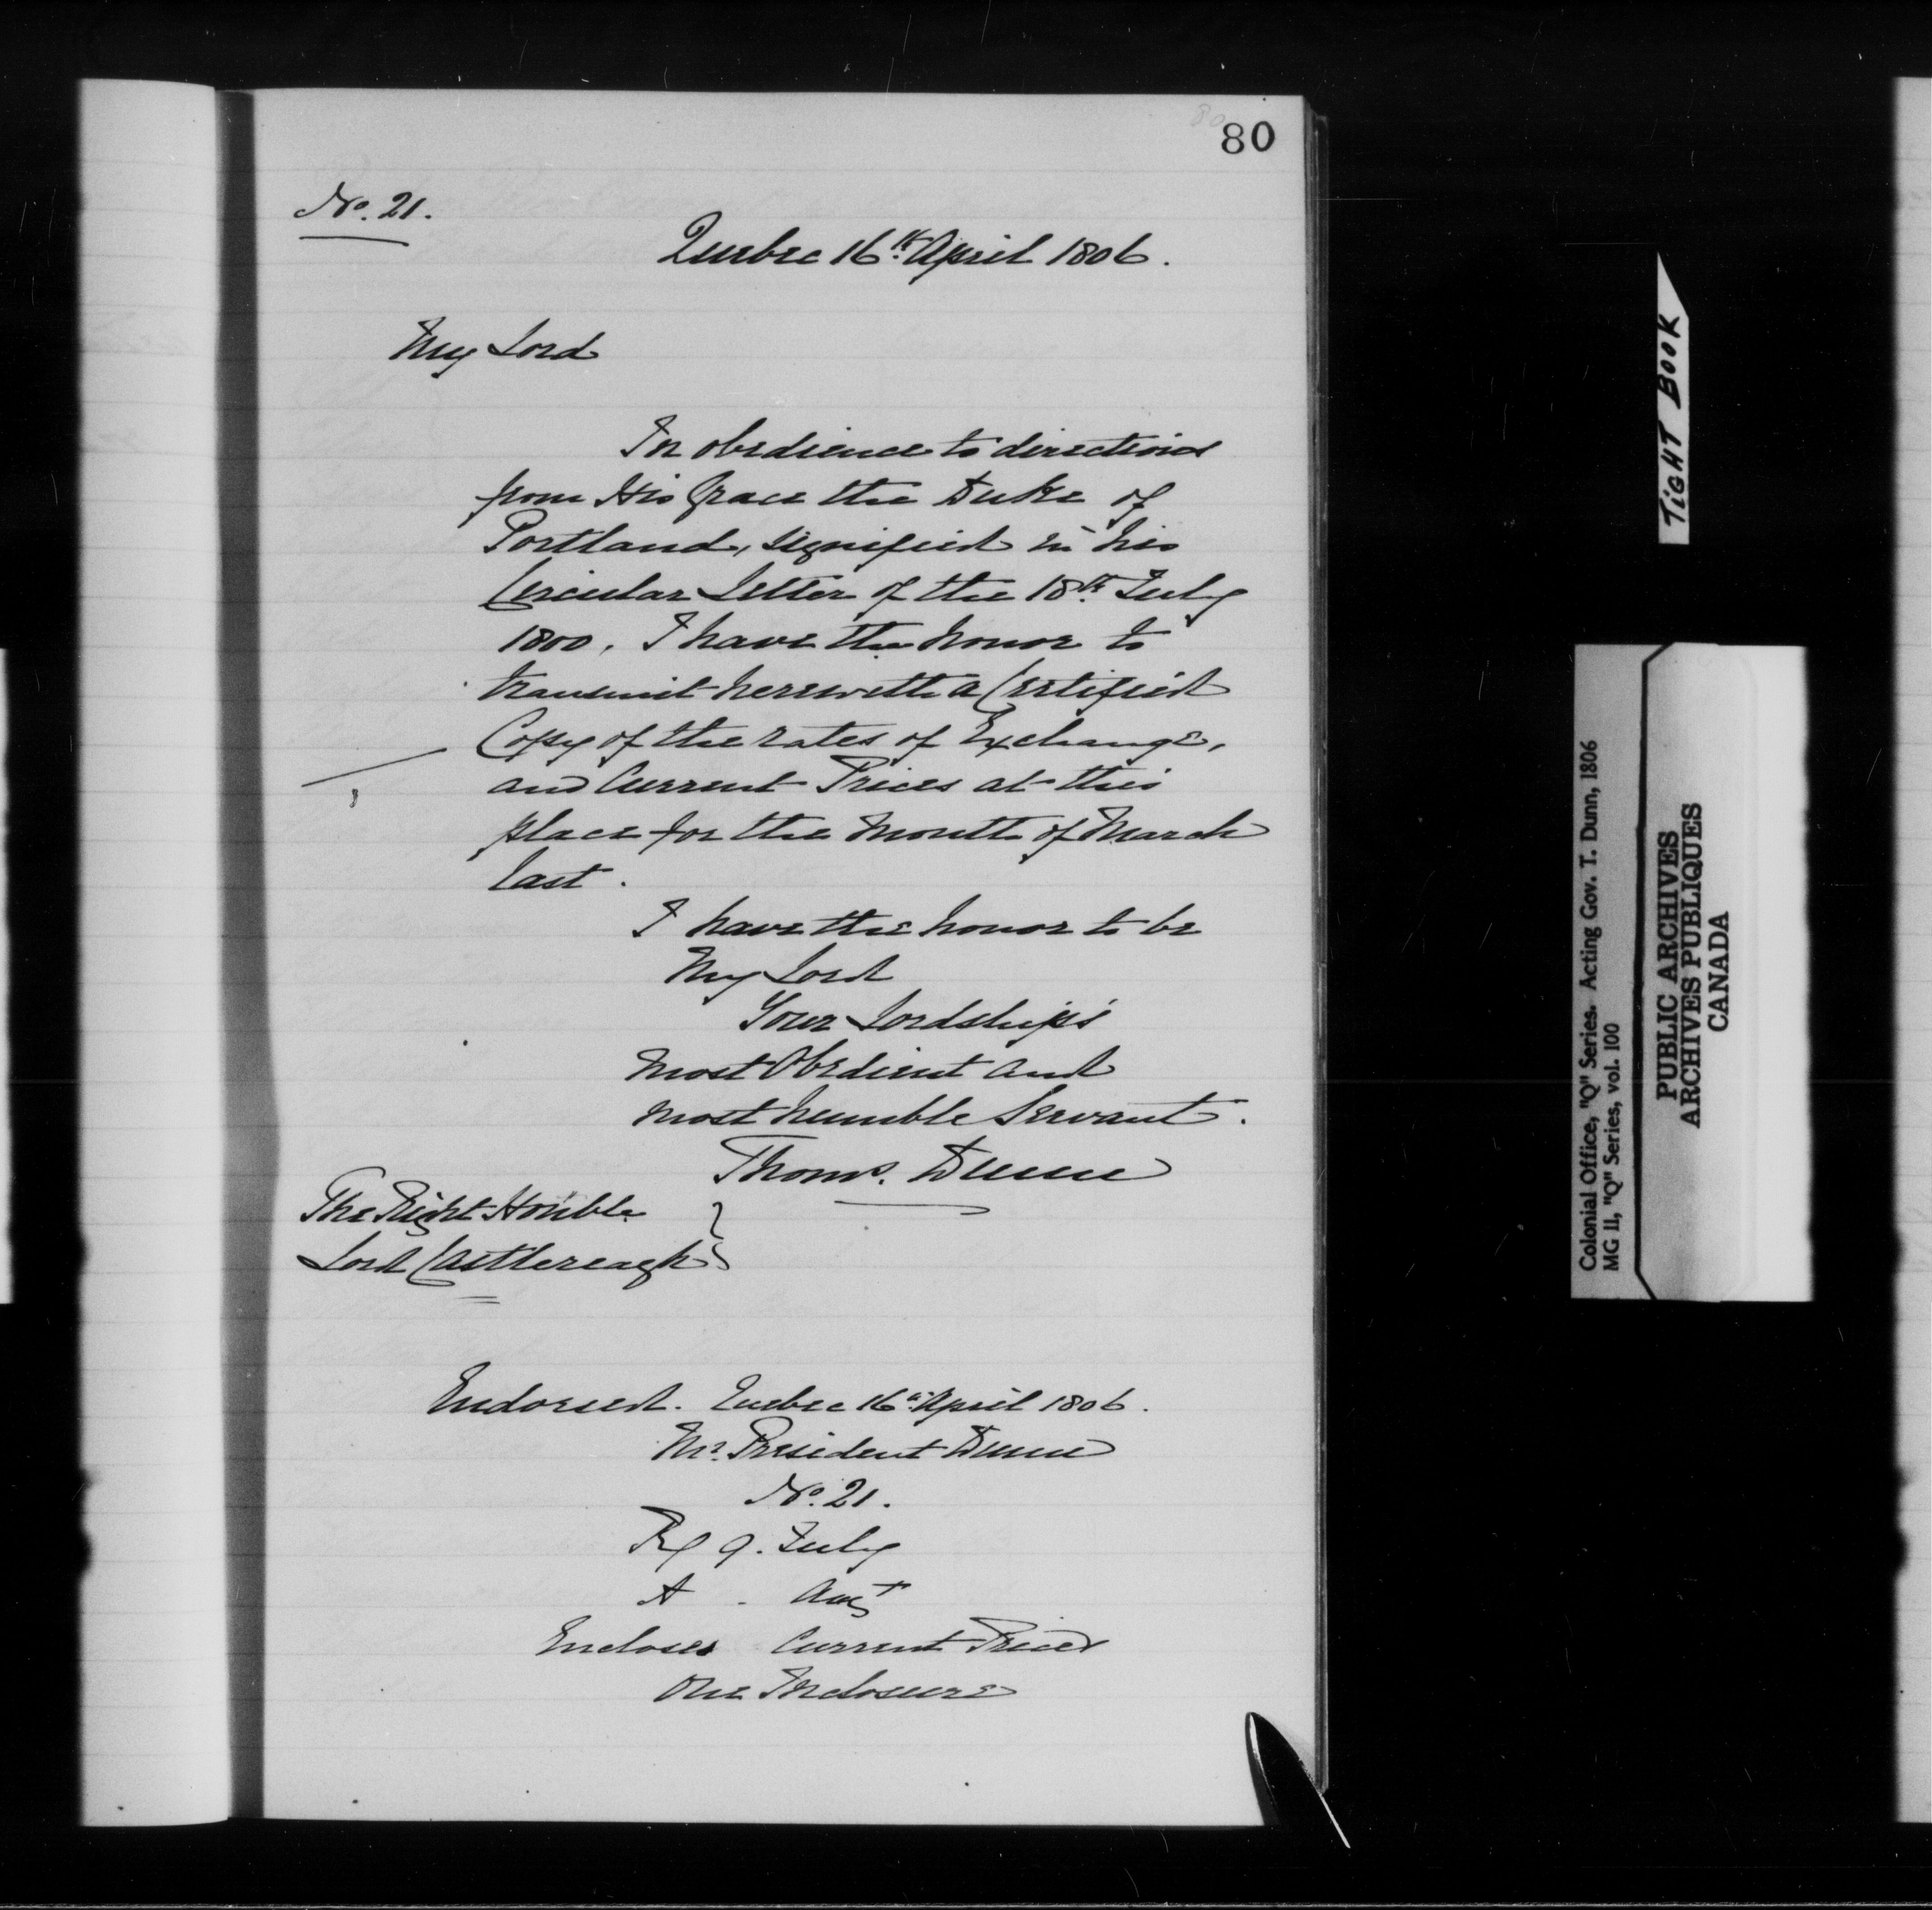 80
No. 21.
Quebec 16th April 1806.
My Lord
In obedience to directions
from His Grace the Duke of
Portland, signified in his
Circular Letter of the 18th July
1800, I have the honor to
transmit herewith a Certified
Copy of the rates of Exchange,
and Current Prices at this
place for the Month of March
last.
I have the honor to be
My Lord
Your Lordship's
most Obedient and
most humble Servant.
Thoms. Dunn
The Right Honble
Lord Castlereagh
Endorsed. Quebec 16th April 1806.
Mr. President Dunn
No. 21.
R 9. July
A . Augt
Encloses Current Prices
One Inclosure
TIGHT BOOK
Colonial Office, "Q" Series. Acting Gov. T. Dunn, 1806
MG 11, "Q" Series, vol. 100
PUBLIC ARCHIVES
ARCHIVES PUBLIQUES
CANADA